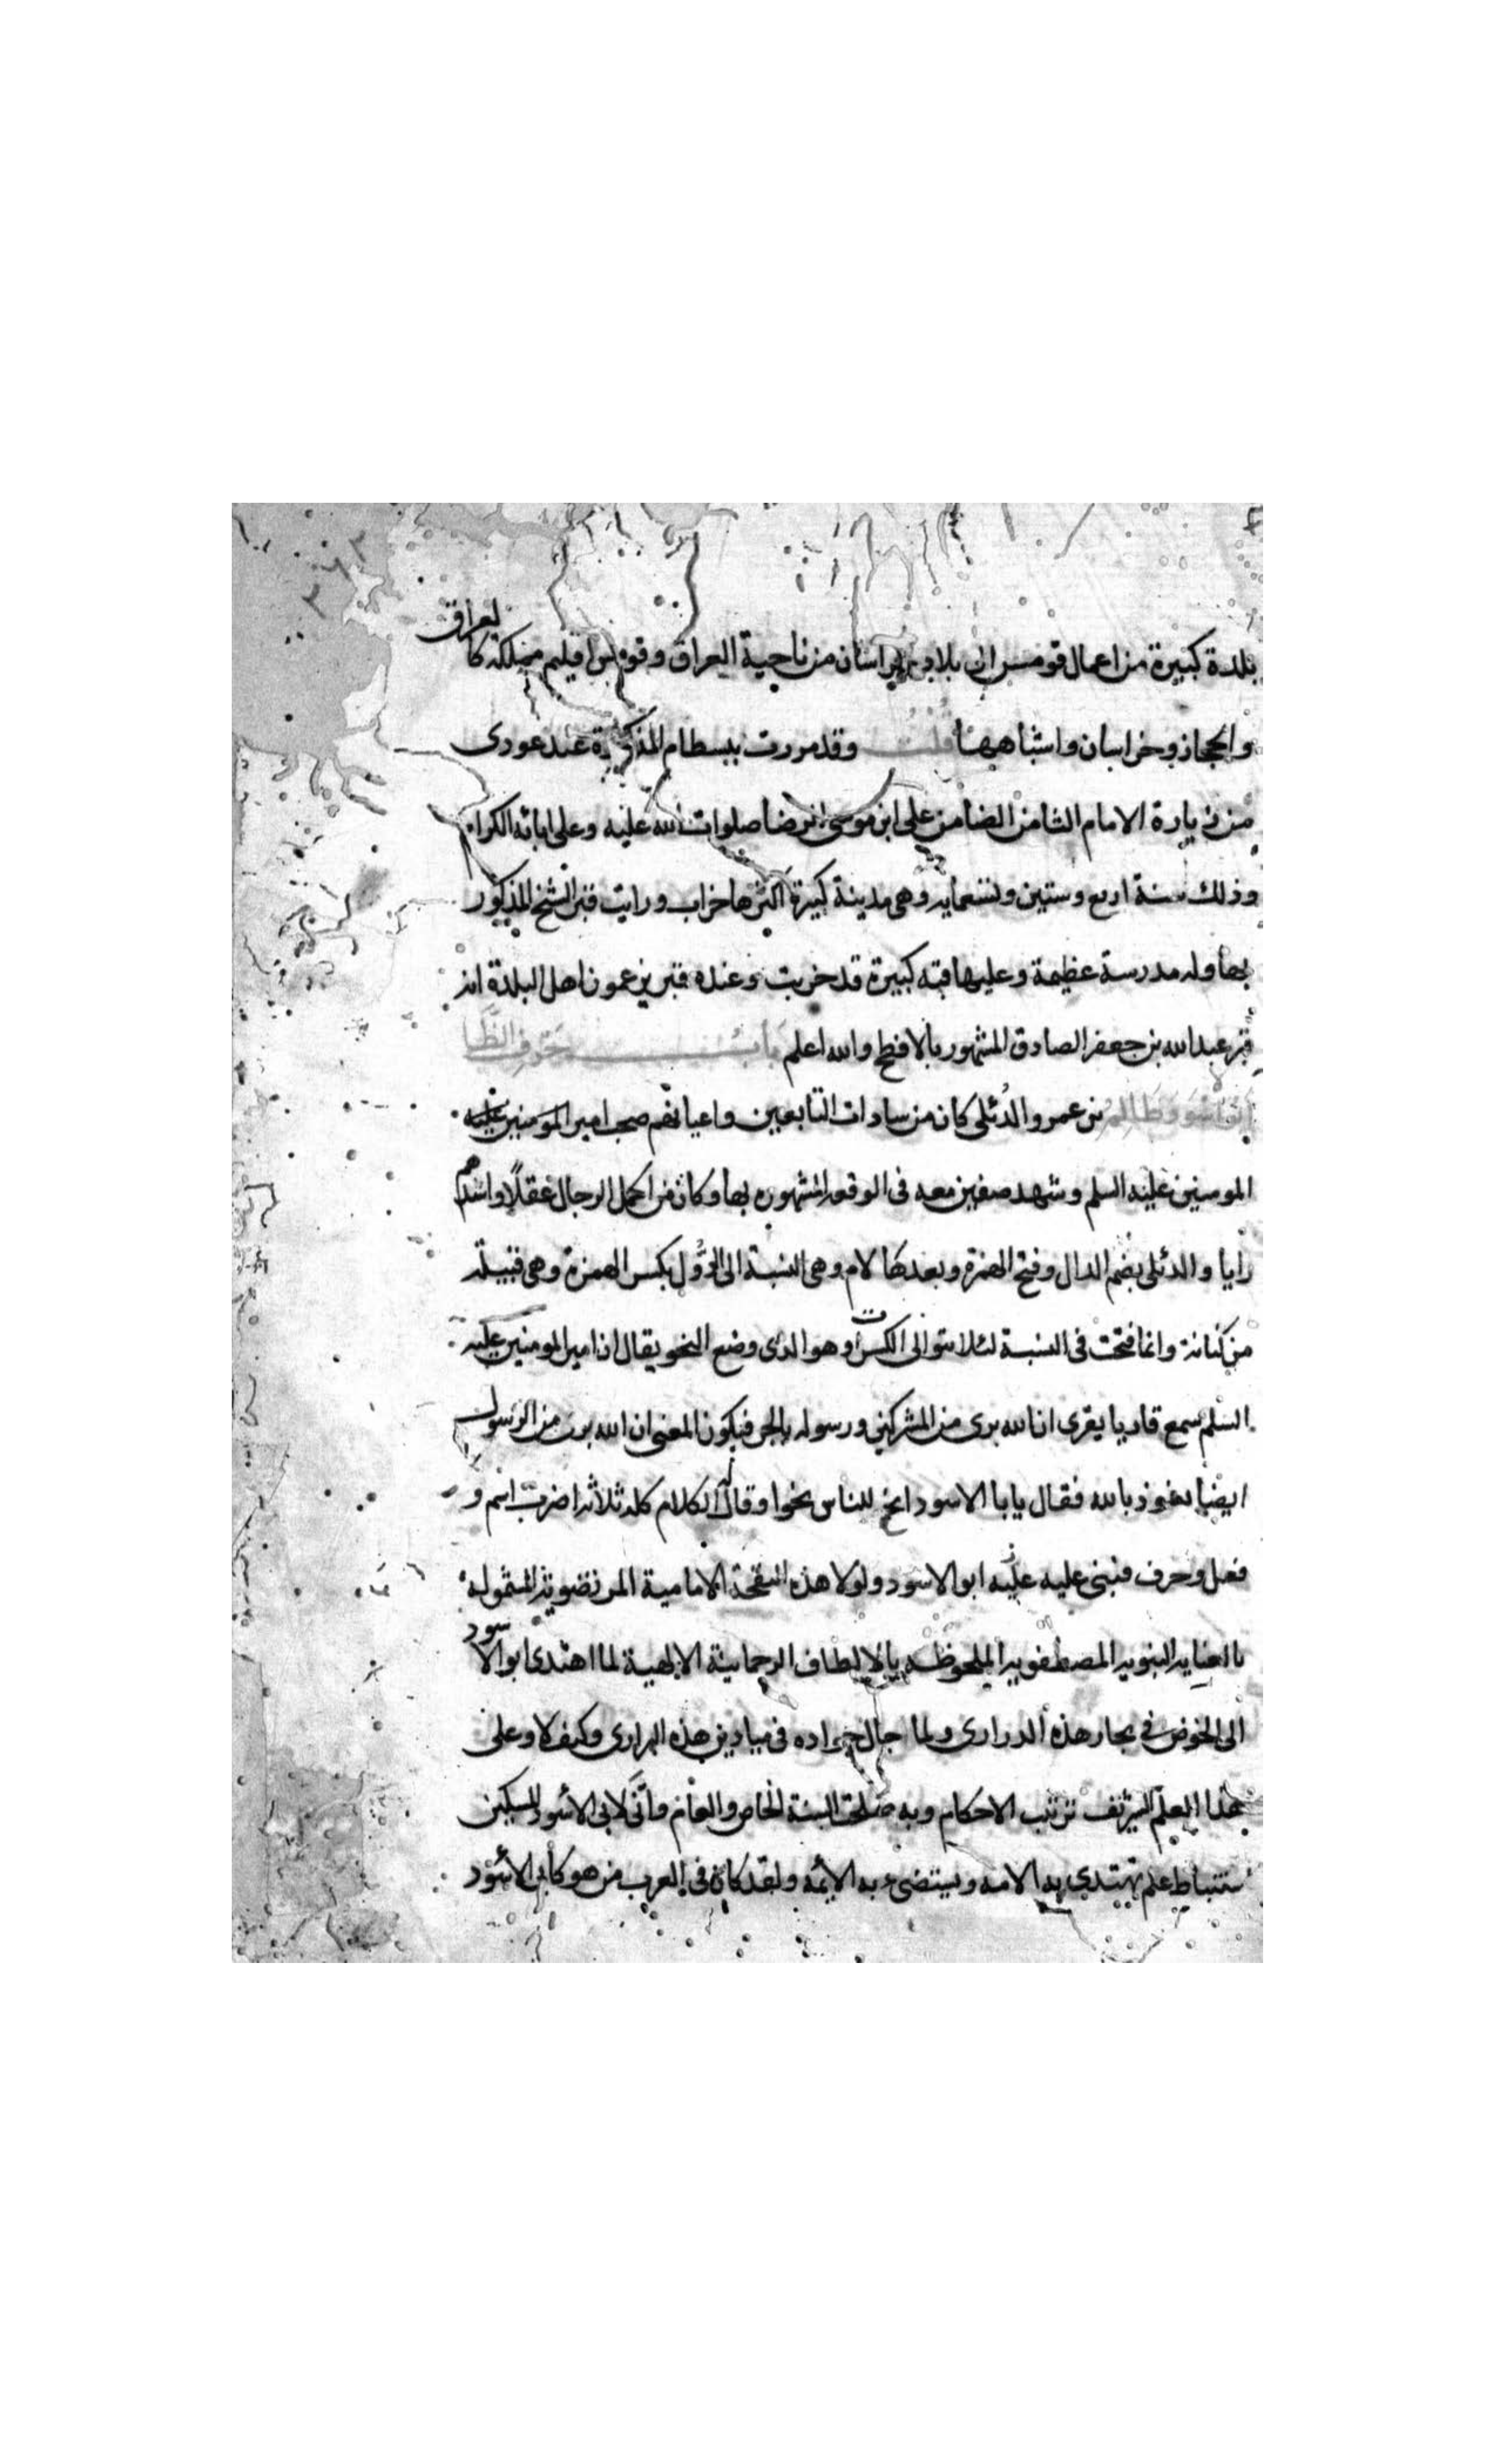 بلدة كبيرة من اعمال قومس اول بلاد خراسان من ناحية العراق وقومس اقليم مملكة كالعراق
والحجاز وخراسان واشباهها قلت وقد مررت ببسطام المذكورة عند عودى
من زيارة الامام الثامن الضامن على ابن موسى الرضا صلوات الله عليه وعلى ابائه الكرام
وذلك سنة اربع وستين وتسعمايه وهى مدينة كبيرة اكثرها خراب ورايت قبر الشيخ المذكور
بها وله مدرسة عظيمة وعليها قبه كبيرة قد خربت وعنده قبر يزعمون اهل البلدة انه
قبر عبد الله بن جعفر الصادق المشهور بالافطح والله اعلم باب حرف الظا
ابو الاسود ظالم بن عمرو الدُئلى كان من سادات التابعين واعيانهم صحب امير المومنين عليه
المومنين عليه السلم وشهد صفين معه فى الوقعه المشهوره بها وكان من اكمل الرجال عقلًا واشدهم
رايا والدئلى بضم الدال وفتح الهمزة وبعدها لام وهى النسبة الى الدُّول بكسر الهمزة وهى قبيلة
من كنانة وانما فتحت فى النسبة لئلا تتوالى الكسرات وهو الذى وضع النحو يقال ان امير المومنين عليه
السلم سمع قاريا يقرى ان الله برى من المشركين ورسوله بالجر فيكون المعنى ان الله برى من الرسول
ايضا نعوذ بالله فقال يابا الاسود انح للناس نحوا وقال له الكلام كله ثلاثة اضرب اسم و
فعل وحرف فبنى عليه عليه ابو الاسود ولولا هذه النفحة الامامية المرتضويه المشموله
بالعنايه النبويه المصطفويه الملحوظه بالالطاف الرحمانية الالهية لما اهتدى ابو الاسود
الى الخوض فى بحار هذه الدرارى ولما جال جواده فى ميادين هذه البرارى وكيف لا وعلى
هذا العلم الشريف ترتب الاحكام وبه صلحة السنة الخاص والعام وانَّى لابى الاسود المسكين
ستنباط علم تهتدى به الامه ويستضىء به الائمه ولقد كان فى العرب من هو كابى الاسود